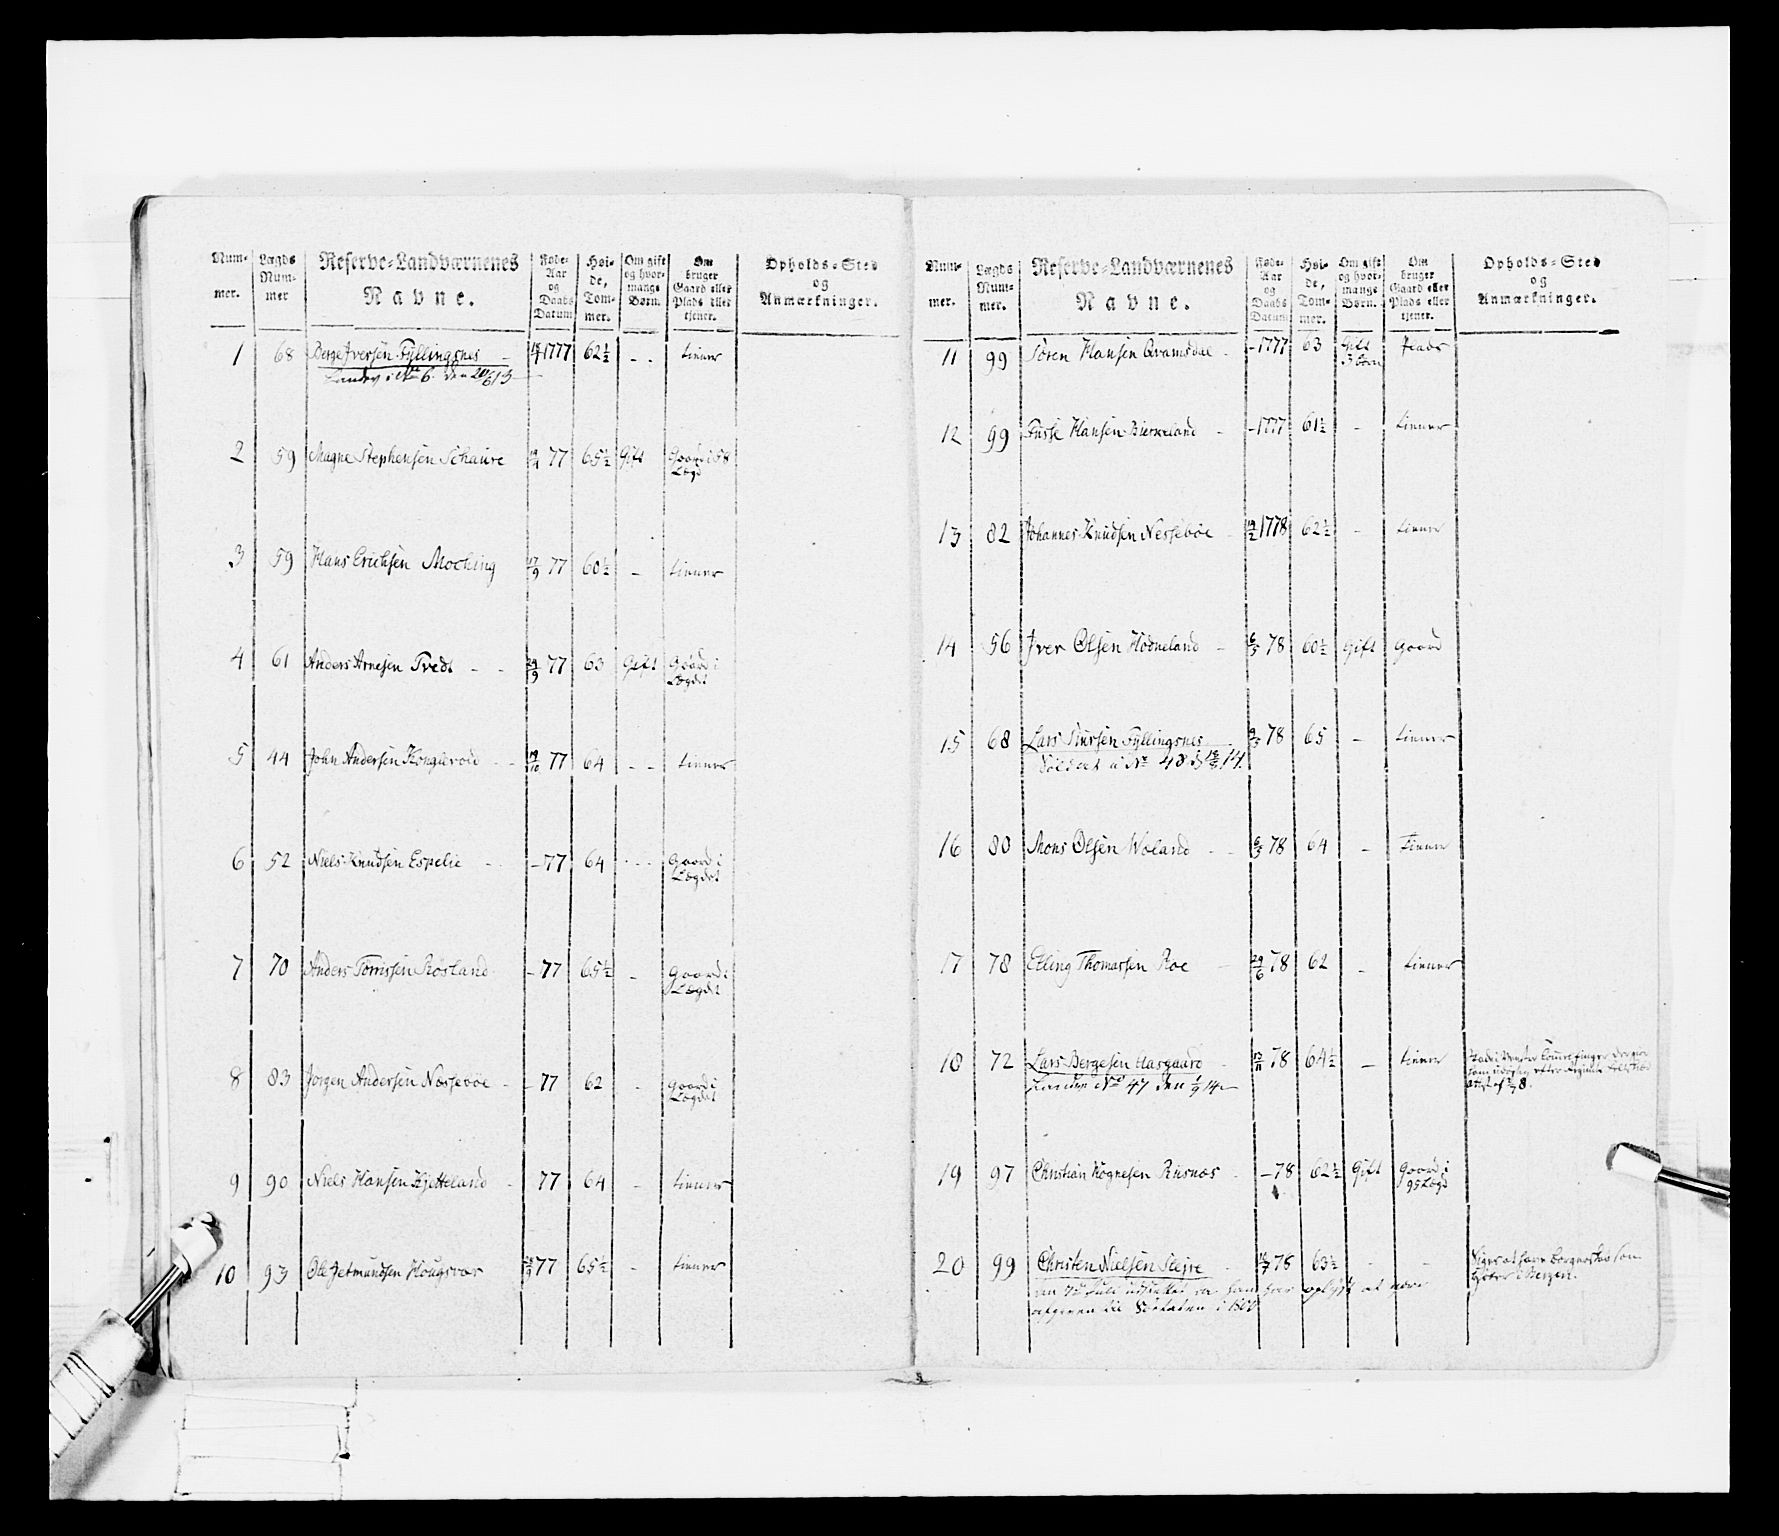 Num-
mer.
Lægds
Num-
mer
Reserve-Landværnenes
Navne.
Føde-
Aar
og
Daabs
Datum
Høi-
de,
Tom-
mer.
Om gift
og hvor-
mange
Børn.
Om
bruger
Gaard eller
Plads eller
tjener.
Opholds-Sted
og
Anmærkninger.
1 68 Berge Iversen Fyllingsnes - 1777 62½ - - tiener
Landv i No 6. den
2 59 Magne Stephensen Schaure 77 65½ Gift Gaard i 58
Lægd
3 59 Hans Erichsen Moching 17/9 77 60½ - tiener
4 61 Anders Arnesen Tvedt - - 29/9 77 63 Gift Gaard i
Lægdet
5 44 John Andersen Konglevold - - 19/10 77 64 - - tiener
6 52 Niels Knudsen Espelie - - - 77 64 - - - Gaard i
Lægdet
7 70 Anders Tomissen Røsland - 77 65½ - Gaard i
Lægdet
8 83 Jørgen Andersen Nessebøe - - 77 62 - Gaard i
Lægdet
9 90 Niels Hansen Hjetteland - 77 64 - tiener
10 93 Ole Jetmundsen Hougsvær 77 65½ - tiener
Num-
mer.
Lægds
Num-
mer.
Reserve-Landværnenes
Navne.
Føde-
Aar
og
Daabs
Datum
Høi-
de,
Tom-
mer.
Om gift
og hvor-
mange
Børn.
Om
bruger
Gaard eller
Plads eller
tjener.
Opholds-Sted
og
Anmærkninger.
11 99 Søren Hansen Qvamsdal - - 1777 63 Gift Plads
3 Børn
12 99 Fusse Hansen Bierkeland - - 1777 61½ - tiener
13 82 Johannes Knudsen Nessebøe - 19/2 1778 62½ - tiener
14 56 Iver Olsen Hodneland - 78 60½ Gift Gaard
15 68 Lars Fyllingsnes 78 65 - tiener
Soldat i No 48 14.
16 80 Mons Olsen Woland - - 78 64 - Tiener
17 78 Elling Thomassen Roe - 29/6 78 62 - tiener
18 72 Lars Bergesen Hasgaard - 78 64½ - tiener
No 47 den 1/9 14 -
19 97 Christian Rognesen Risnæs - - 78 62½ Gift Gaard i
95 Lægd
20 99 Christen Nielsen Sleire - 78 63½ - - Siges at have Borgerskab som
i Bergen.
den Juli udsluttet da han har oplyst at være
afgaaen til i 1800